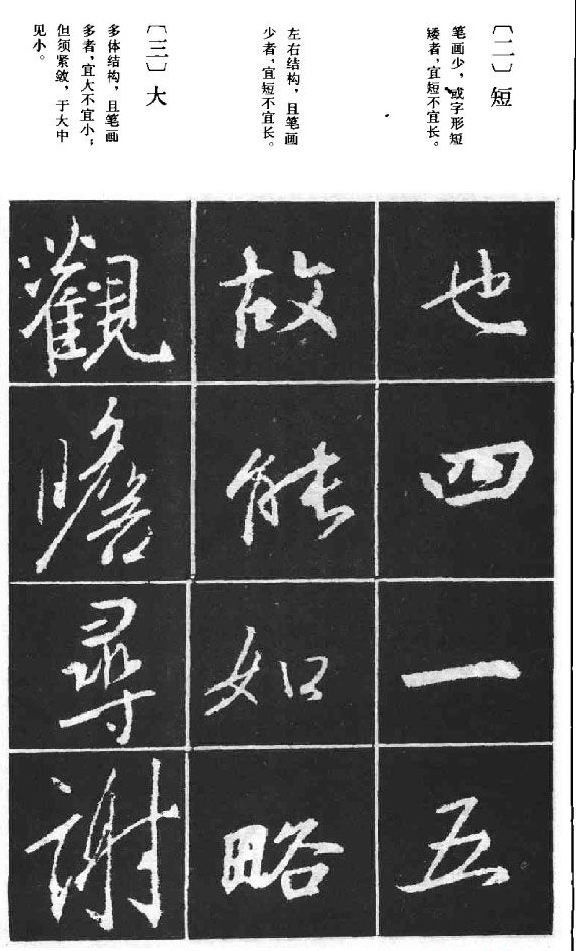 〔二〕短
笔画少，或字形短
矮者，宜短不宜长。
左右结构，且笔画
少者，宜短不宜长。
〔三〕大
多体结构，且笔画
多者，宜大不宜小；
但须紧敛，于大中
见小。
也四一五
故能如略
觀瞻尋謝